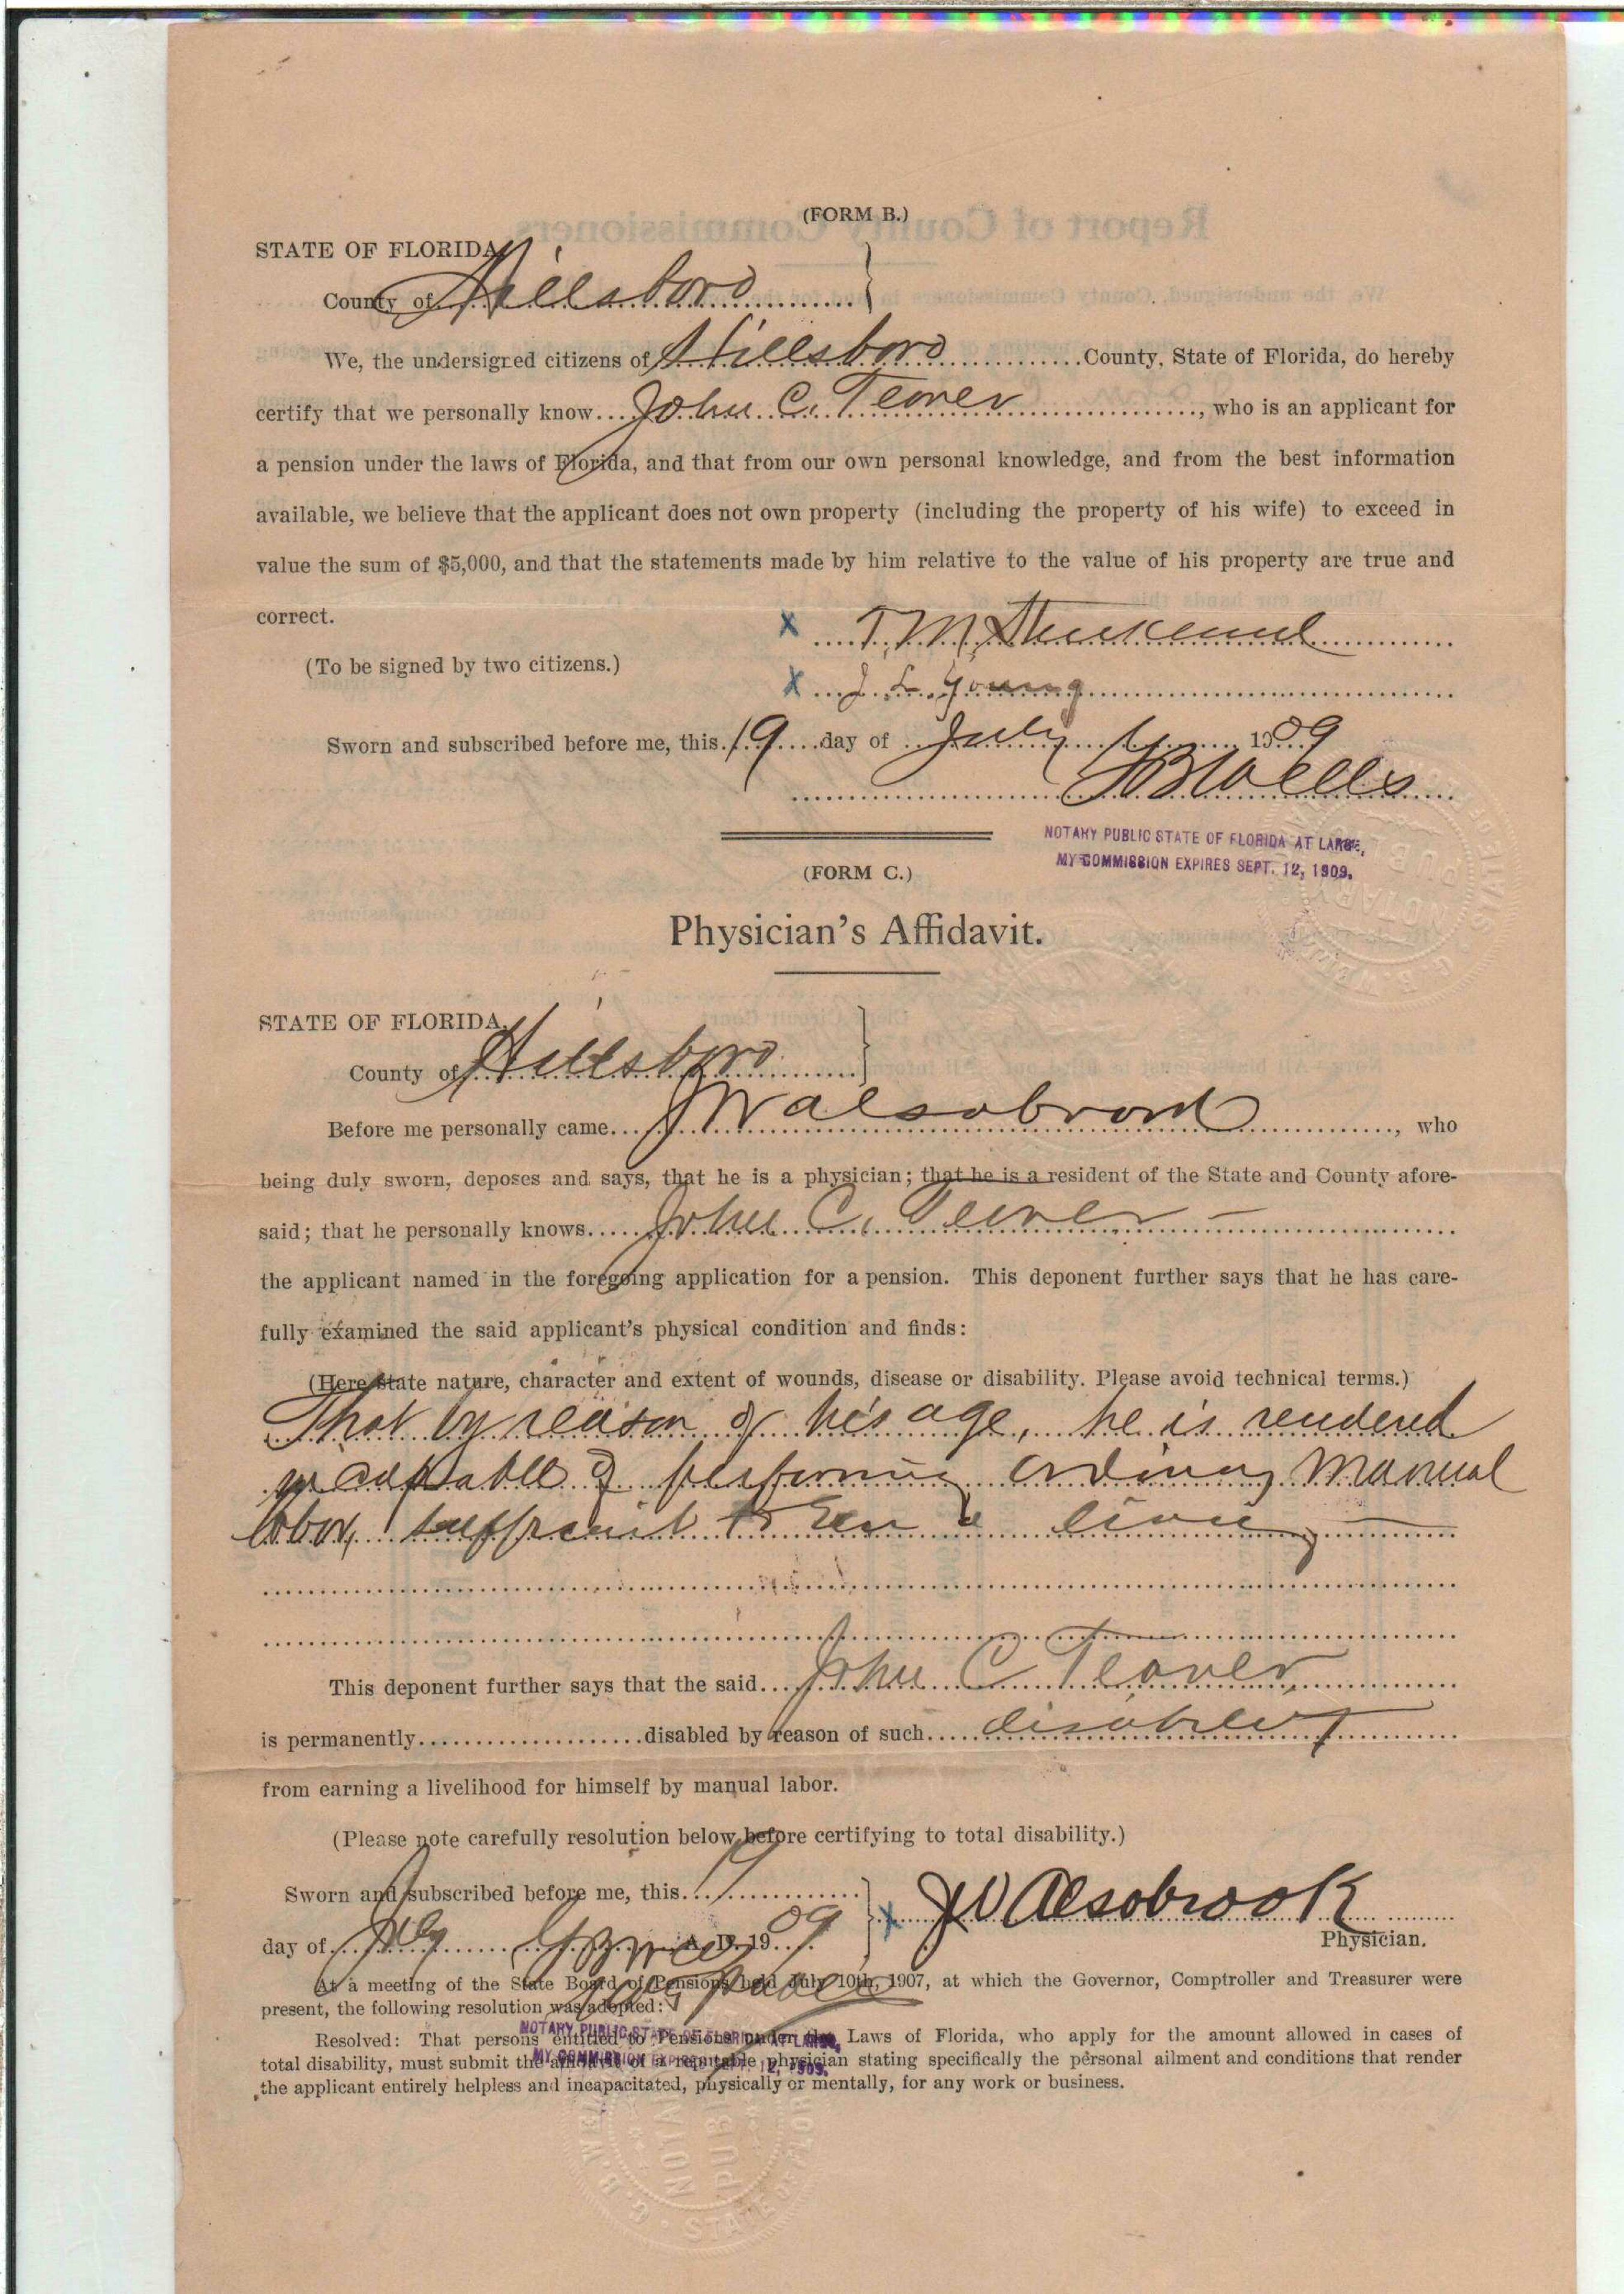 (FORM B.)
STATE OF FLORIDA,
County of Hillsboro
We, the undersigned citizens of Hillsboro County, State of Florida, do hereby
certify that we personally know John C. Teaver, who is an applicant for
a pension under the laws of Florida, and that from our own personal knowledge, and from the best information
available, we believe that the applicant does not own property (including the property of his wife) to exceed in
value the sum of $5,000, and that the statements made by him relative to the value of his property are true and
correct.
x T. M.
(To be signed by two citizens.)
x J. L. Young
Sworn and subscribed before me, this 19 day of July 1909
NOTARY PUBLIC STATE OF FLORIDA AT LARGE,
MY COMMISSION EXPIRES SEPT. 12, 1909.
(FORM C.)
Physician's Affidavit.
STATE OF FLORIDA,
County of Hillsboro
Before me personally came J W Alsobrook, who
being duly sworn, deposes and says, that he is a physician; that he is a resident of the State and County afore-
said; that he personally knows John C. Teaver
the applicant named in the foregoing application for a pension. This deponent further says that he has care-
fully examined the said applicant's physical condition and finds:
(Here state nature, character and extent of wounds, disease or disability. Please avoid technical terms.)
That by reason of his age, he is rendered
incapable of performing ordinary manual
labor, sufficient to earn a living
This deponent further says that the said John C. Teaver
is permanently disabled by reason of such disability
from earning a livelihood for himself by manual labor.
(Please note carefully resolution below before certifying to total disability.)
Sworn and subscribed before me, this 19
J W Alsobrook
day of July A. D. 1909
Physician.
At a meeting of the State Board of Pensions held July 10th, 1907, at which the Governor, Comptroller and Treasurer were
present, the following resolution was adopted:
NOTARY PUBLIC STATE OF FLORIDA AT LARGE,
Resolved: That persons entitled to Pensions under the Laws of Florida, who apply for the amount allowed in cases of
MY COMMISSION EXPIRES SEPT. 12, 1909.
total disability, must submit the affidavit of a reputable physician stating specifically the personal ailment and conditions that render
the applicant entirely helpless and incapacitated, physically or mentally, for any work or business.